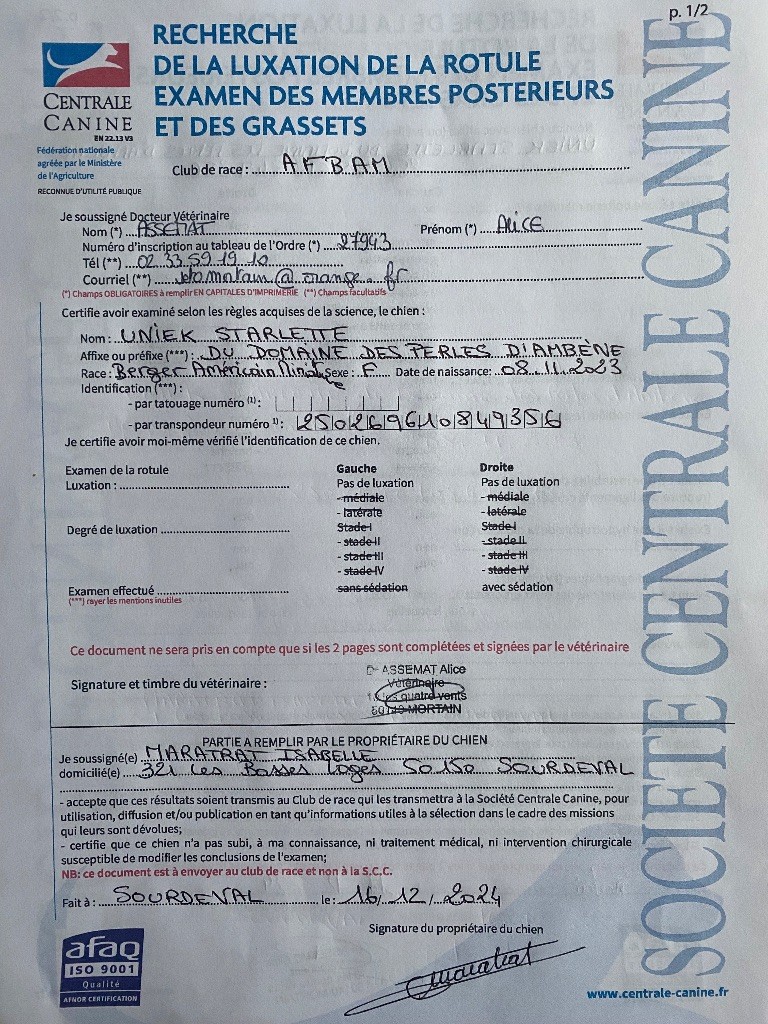 p. 1/2
RECHERCHE
DE LA LUXATION DE LA ROTULE
EXAMEN DES MEMBRES POSTERIEURS
ET DES GRASSETS
CENTRALE
CANINE
EN 22.13 V3
Fédération nationale
agréée par le Ministère
de l'Agriculture
RECONNUE D'UTILITÉ PUBLIQUE
Club de race : AFBAM
Je soussigné Docteur Vétérinaire
Nom (*) ASSEMAT Prénom (*) ALICE
Numéro d'inscription au tableau de l'Ordre (*) 27943
Tél (**) 02 33 59 19 10
Courriel (**) vetomortain@orange.fr
(*) Champs OBLIGATOIRES à remplir EN CAPITALES D'IMPRIMERIE (**) Champs facultatifs
Certifie avoir examiné selon les règles acquises de la science, le chien :
Nom : UNIEK STARLETTE
Affixe ou préfixe (***) : DU DOMAINE DES PERLES D'AMBÈNE
Race : Berger Américain Miniature Sexe : F Date de naissance : 08.11.2023
Identification (***) :
- par tatouage numéro (1) :
- par transpondeur numéro 1) : 250269610849356
Je certifie avoir moi-même vérifié l'identification de ce chien.
Examen de la rotule Gauche Droite
Luxation : Pas de luxation Pas de luxation
- médiale - médiale
- latérale - latérale
Degré de luxation Stade I Stade I
- stade II - stade II
- stade III - stade III
- stade IV - stade IV
Examen effectué sans sédation avec sédation
(***) rayer les mentions inutiles
Ce document ne sera pris en compte que si les 2 pages sont complétées et signées par le vétérinaire
Signature et timbre du vétérinaire :
Dr ASSEMAT Alice
Vétérinaire
Les quatre vents
50140 MORTAIN
PARTIE A REMPLIR PAR LE PROPRIÉTAIRE DU CHIEN
Je soussigné(e) MARATRAT ISABELLE
domicilié(e) 321 Les Basses Loges 50150 SOURDEVAL
- accepte que ces résultats soient transmis au Club de race qui les transmettra à la Société Centrale Canine, pour
utilisation, diffusion et/ou publication en tant qu'informations utiles à la sélection dans le cadre des missions
qui leurs sont dévolues;
- certifie que ce chien n'a pas subi, à ma connaissance, ni traitement médical, ni intervention chirurgicale
susceptible de modifier les conclusions de l'examen;
NB: ce document est à envoyer au club de race et non à la S.C.C.
Fait à : SOURDEVAL le : 16/12/2024
Signature du propriétaire du chien
Maratrat
afaq
ISO 9001
Qualité
AFNOR CERTIFICATION
www.centrale-canine.fr
SOCIETE CENTRALE CANINE